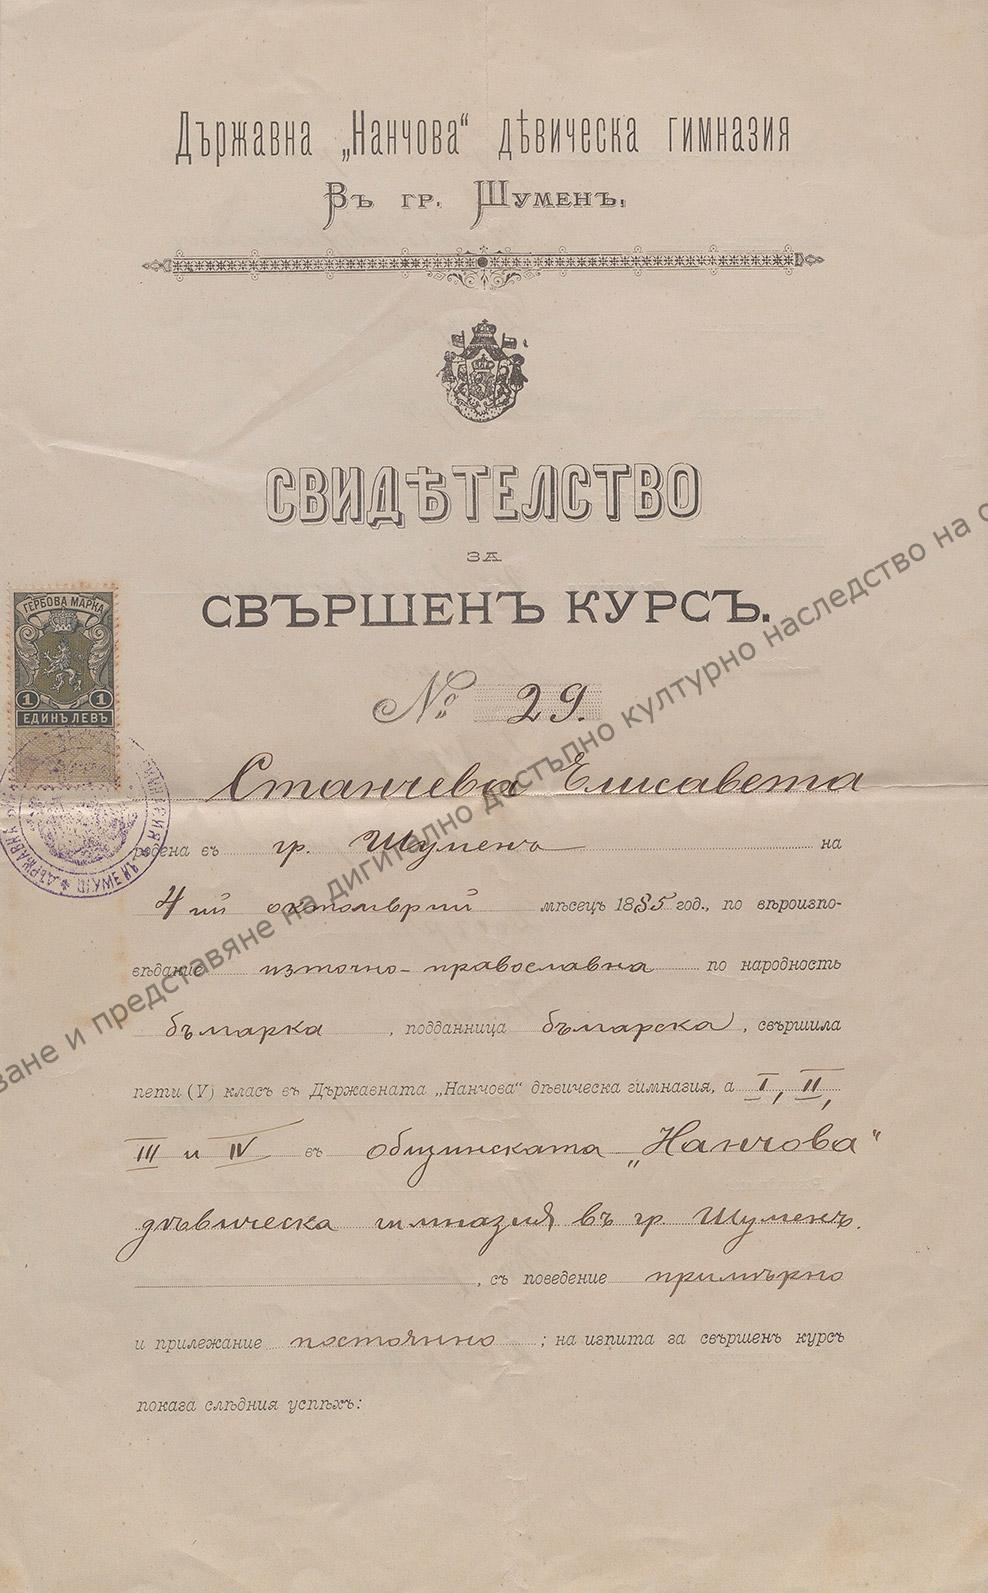 Държавна „Нанчова“ дѣвическа гимназия
Въ гр. Шуменъ.
СВИДѢТЕЛСТВО
ЗА
СВЪРШЕНЪ КУРСЪ.
№ 29.
ГЕРБОВА МАРКА
1 1
ЕДИНЪ ЛЕВЪ
Станчева Елисавета
родена въ гр. Шуменъ на
4ий октомврий мѣсецъ 1885 год., по вѣроизпо-
вѣдание източно-православна по народность
българка, подданница българска, свършила
пети (V) класъ въ Държавната „Нанчова“ дѣвическа гимназия, а I, II,
III и IV въ общинската „Нанчова“
дѣвическа гимназия въ гр. Шуменъ.
, съ поведение примѣрно
и прилежание постоянно; на изпита за свършенъ курсъ
показа слѣдния успѣхъ:
ване и представяне на дигитално достъпно културно наследство на